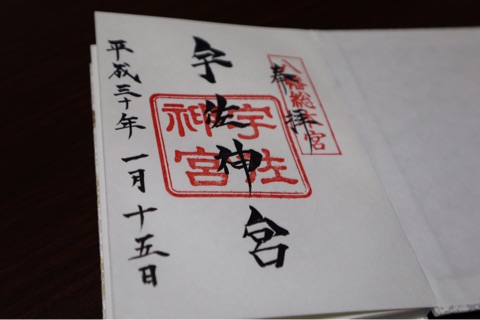 奉拝
八幡総本宮
宇佐神宮
宇佐
神宮
平成三十年一月十五日